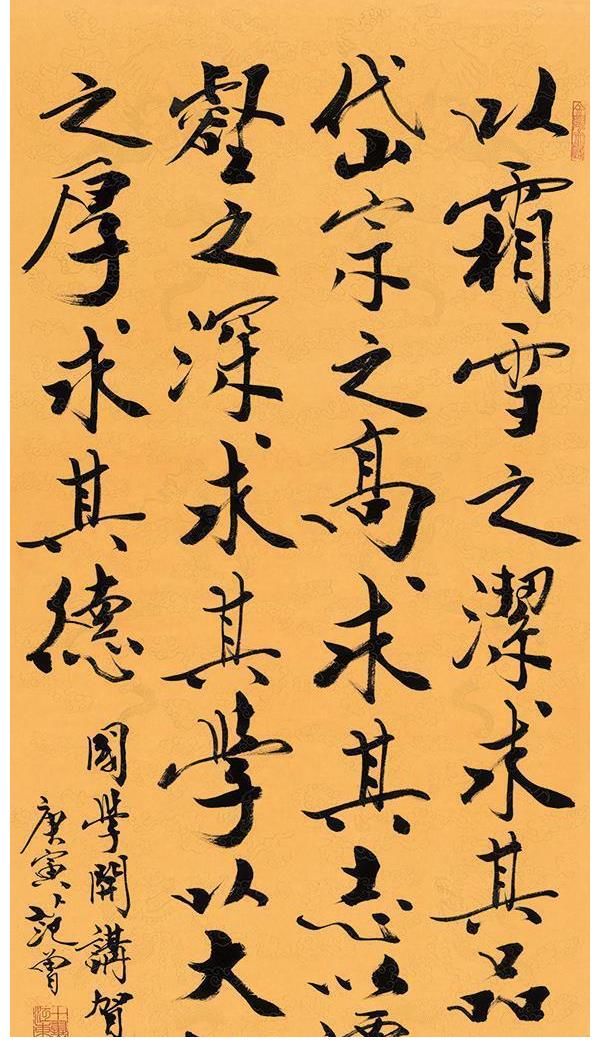 以霜雪之潔求其品
岱宗之高求其志以
壑之深求其學以大
之厚求其德
國學開講賀
庚寅 范曾